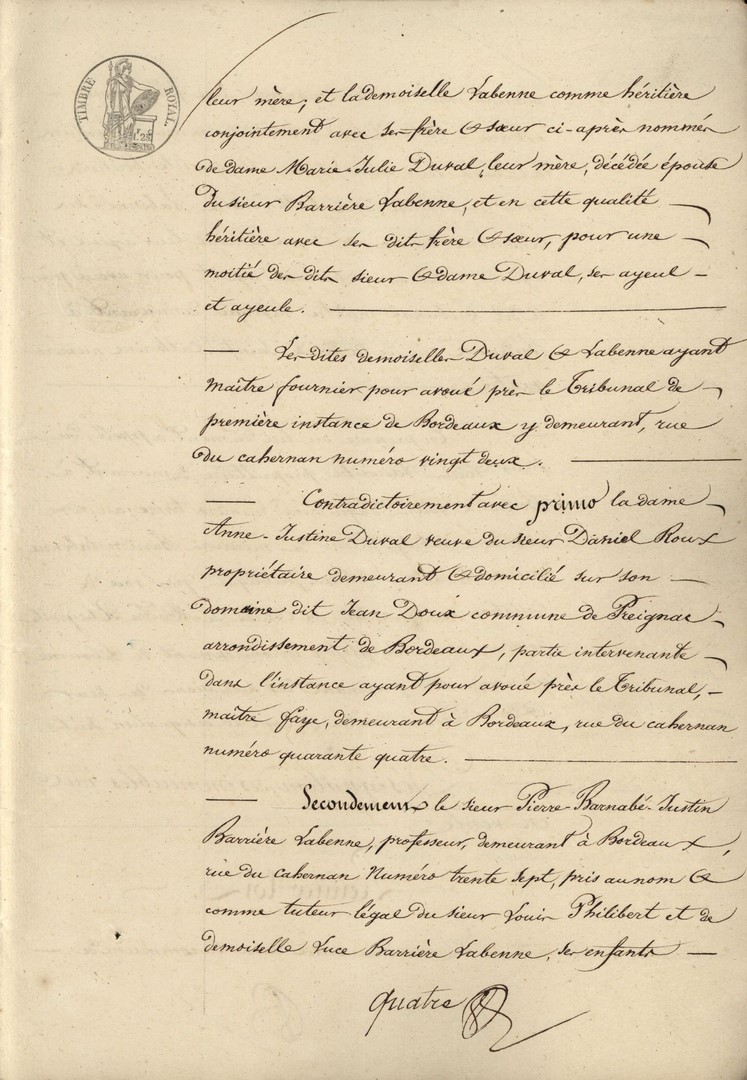 TIMBRE ROYAL
leur mère; et la demoiselle Labenne comme héritière
conjointement avec ses frère & sœur ci-après nommés
de dame Marie-Julie Duval, leur mère, décédée épouse
du sieur Barrière Labenne, et en cette qualité
héritière avec ses dits frère & sœur, pour une
moitié des dits sieur & dame Duval, ses ayeul
et ayeule.
Les dites demoiselles Duval & Labenne ayant
Maître fournier pour avoué près le Tribunal de
première instance de Bordeaux y demeurant, rue
du cahernan numéro vingt deux.
Contradictoirement avec primo la dame
Anne-Justine Duval veuve du sieur Daniel Roux
propriétaire demeurant & domicilié sur son
domaine dit Jean Doux commune de Preignac
arrondissement de Bordeaux, partie intervenante
dans l'instance ayant pour avoué près le Tribunal,
maître faye, demeurant à Bordeaux, rue du cahernan
numéro quarante quatre.
Secondement le sieur Pierre-Barnabé-Justin
Barrière Labenne, professeur, demeurant à Bordeaux,
rue du cahernan Numéro trente sept, pris au nom &
comme tuteur légal du sieur Louis Philibert et de
demoiselle Luce Barrière Labenne, ses enfants
quatre